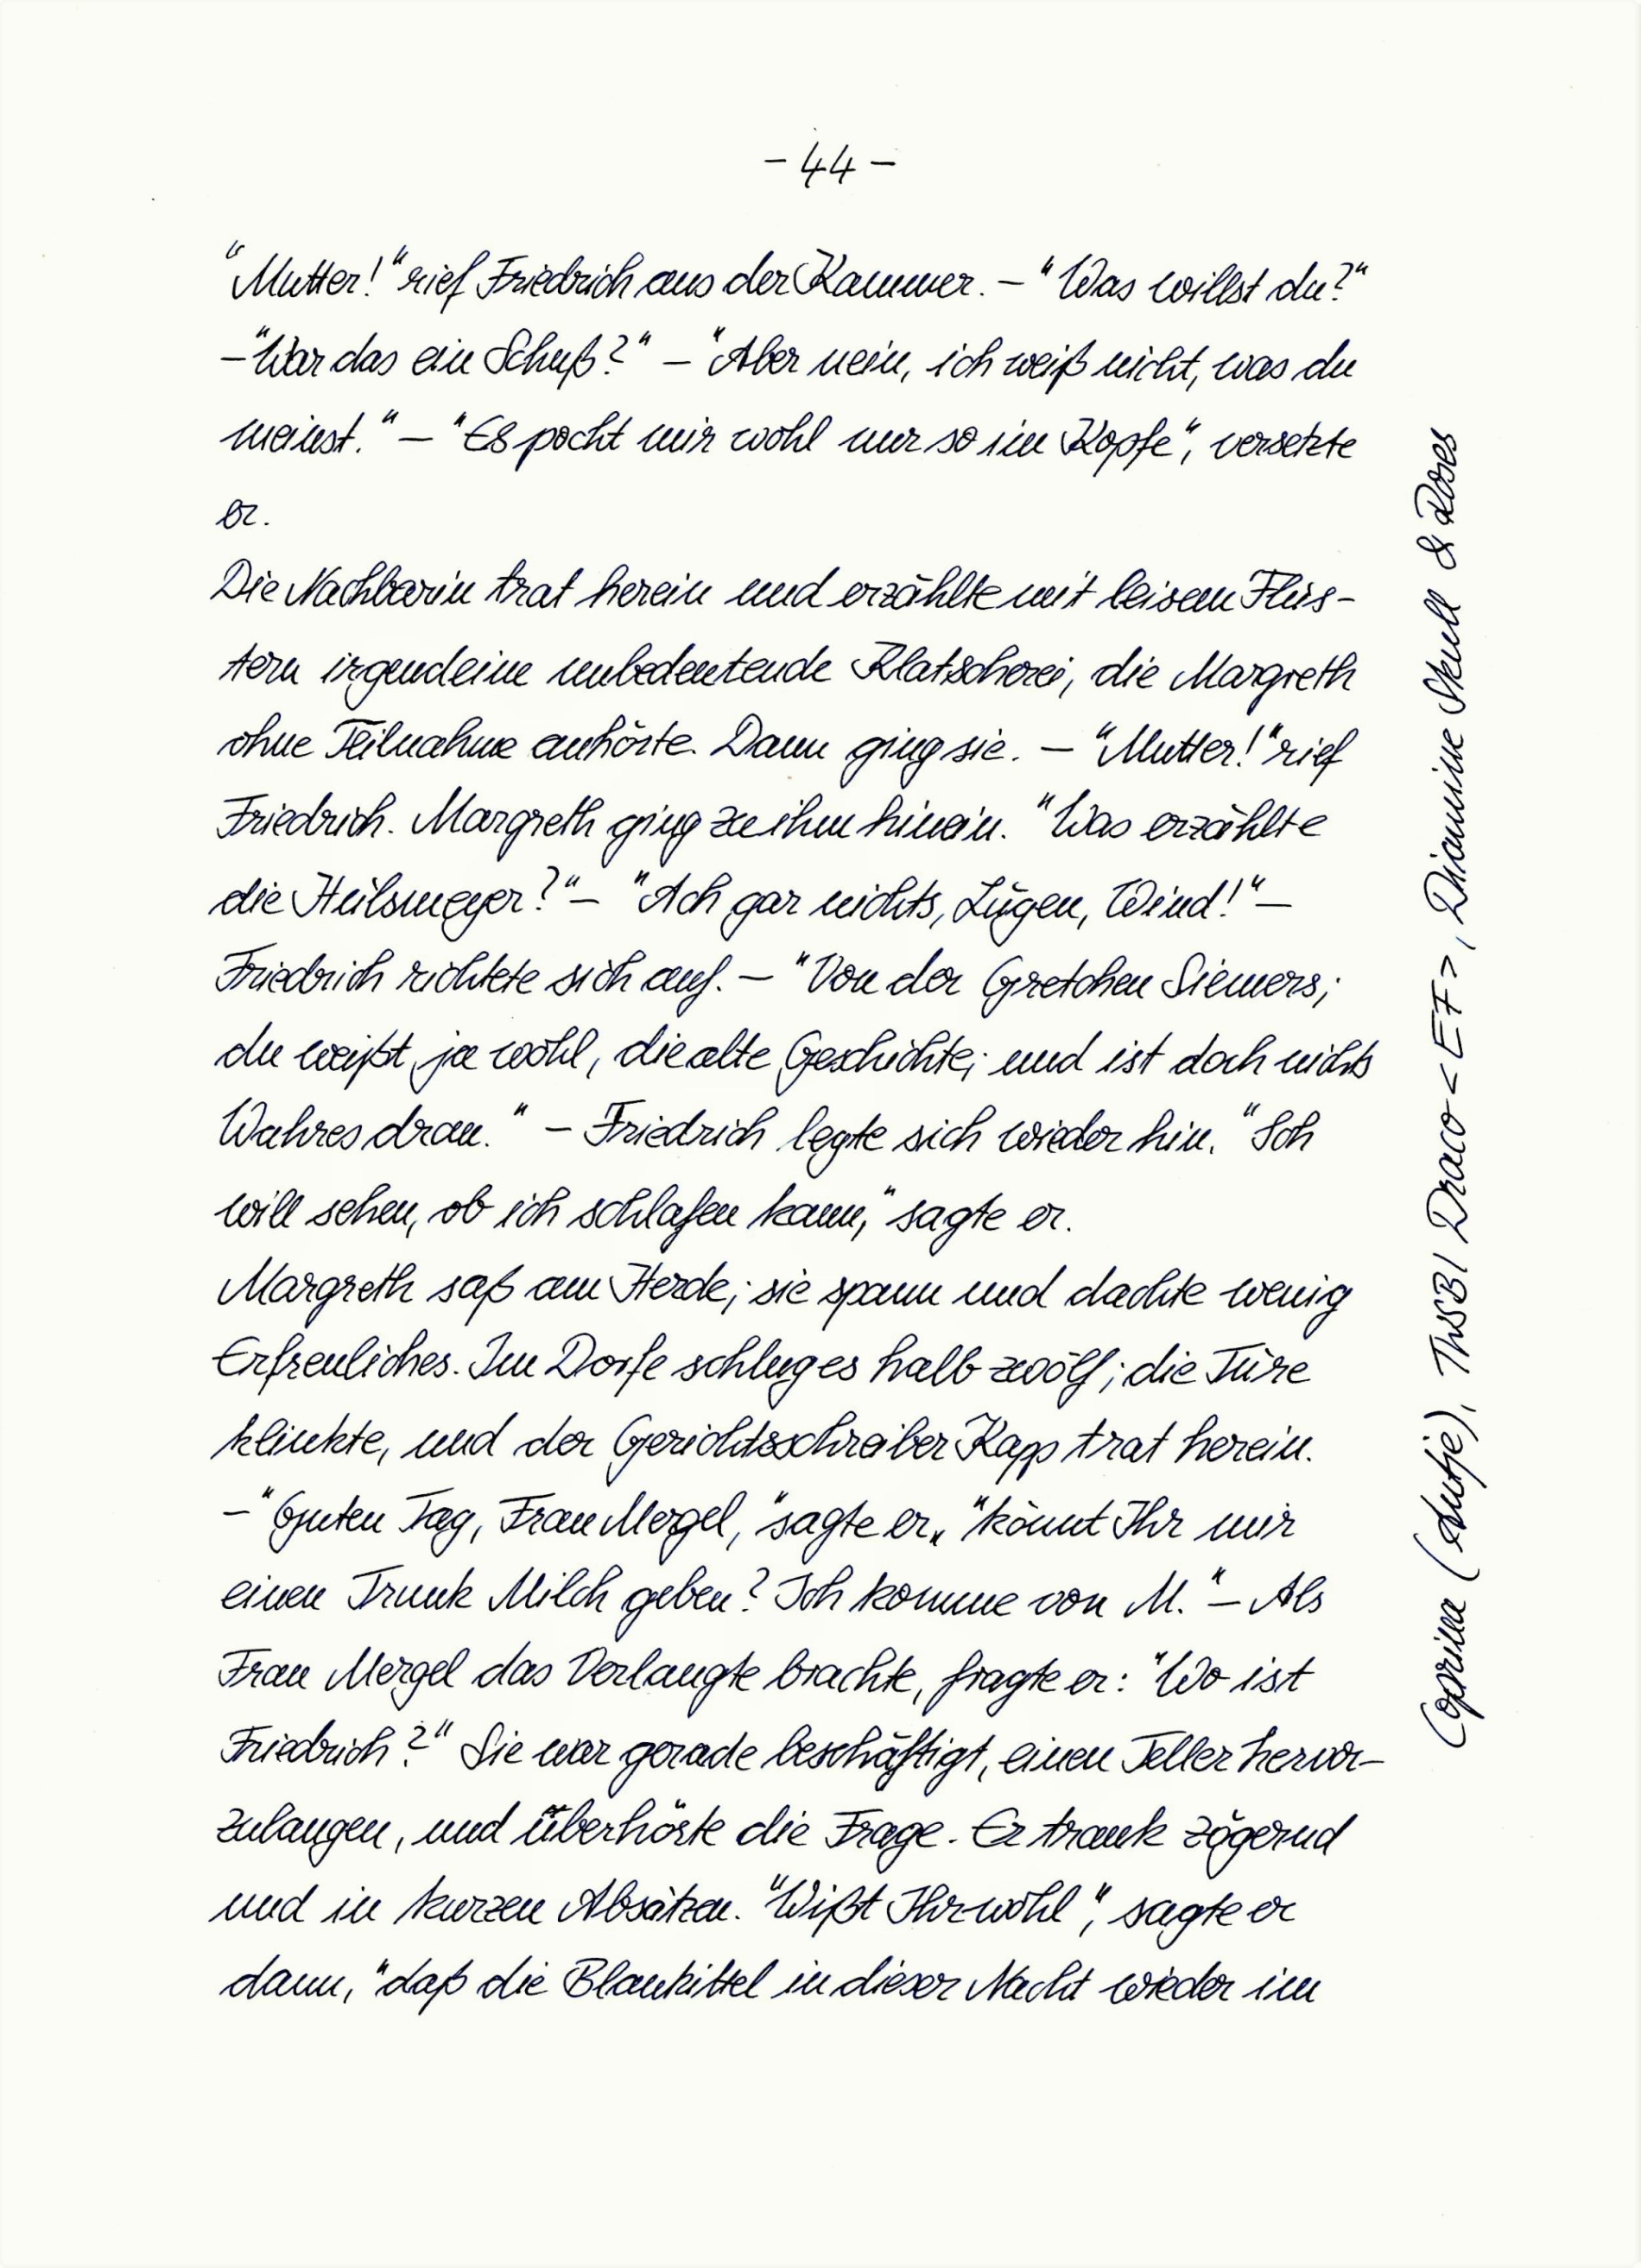 - 44 -
"Mutter!" rief Friedrich aus der Kammer. – "Was willst du?"
– "War das ein Schuß?" – "Aber nein, ich weiß nicht, was du
meinst." – "Es pocht mir wohl nur so im Kopfe", versetzte
er.
Die Nachbarin trat herein und erzählte mit leisem Flüs-
tern irgendeine unbedeutende Klatscherei, die Margreth
ohne Teilnahme anhörte. Dann ging sie. – "Mutter!" rief
Friedrich. Margreth ging zu ihm hinein. "Was erzählte
die Hülsmeyer?" – "Ach gar nichts, Lügen, Wind!" –
Friedrich richtete sich auf. – "Von der Gretchen Siemers;
du weißt ja wohl, die alte Geschichte; und ist doch nichts
Wahres dran." – Friedrich legte sich wieder hin. "Ich
will sehen, ob ich schlafen kann," sagte er.
Margreth saß am Herde; sie spann und dachte wenig
Erfreuliches. Im Dorfe schlug es halb zwölf; die Türe
klinkte, und der Gerichtsschreiber Kapp trat herein.
– "Guten Tag, Frau Mergel," sagte er, "könnt Ihr mir
einen Trunk Milch geben? Ich komme von M." – Als
Frau Mergel das Verlangte brachte, fragte er: "Wo ist
Friedrich?" Sie war gerade beschäftigt, einen Teller hervor-
zulangen, und überhörte die Frage. Er trank zögernd
und in kurzen Absätzen. "Wißt Ihr wohl", sagte er
dann, "daß die Blaukittel in dieser Nacht wieder im
Coprina (Antje), TWSBI Draco <EF>, Diamine Skull & Roses